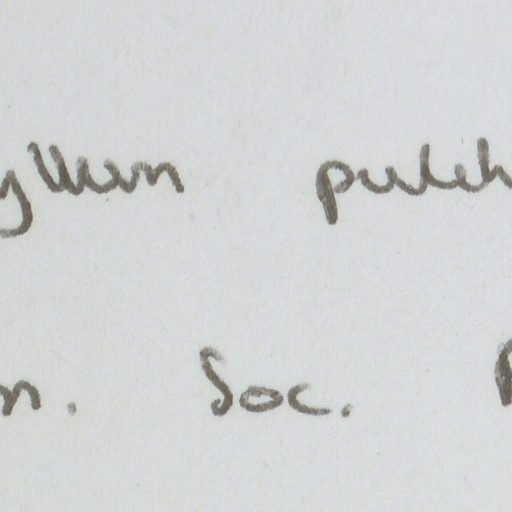 yllum pulch
n. Soc.